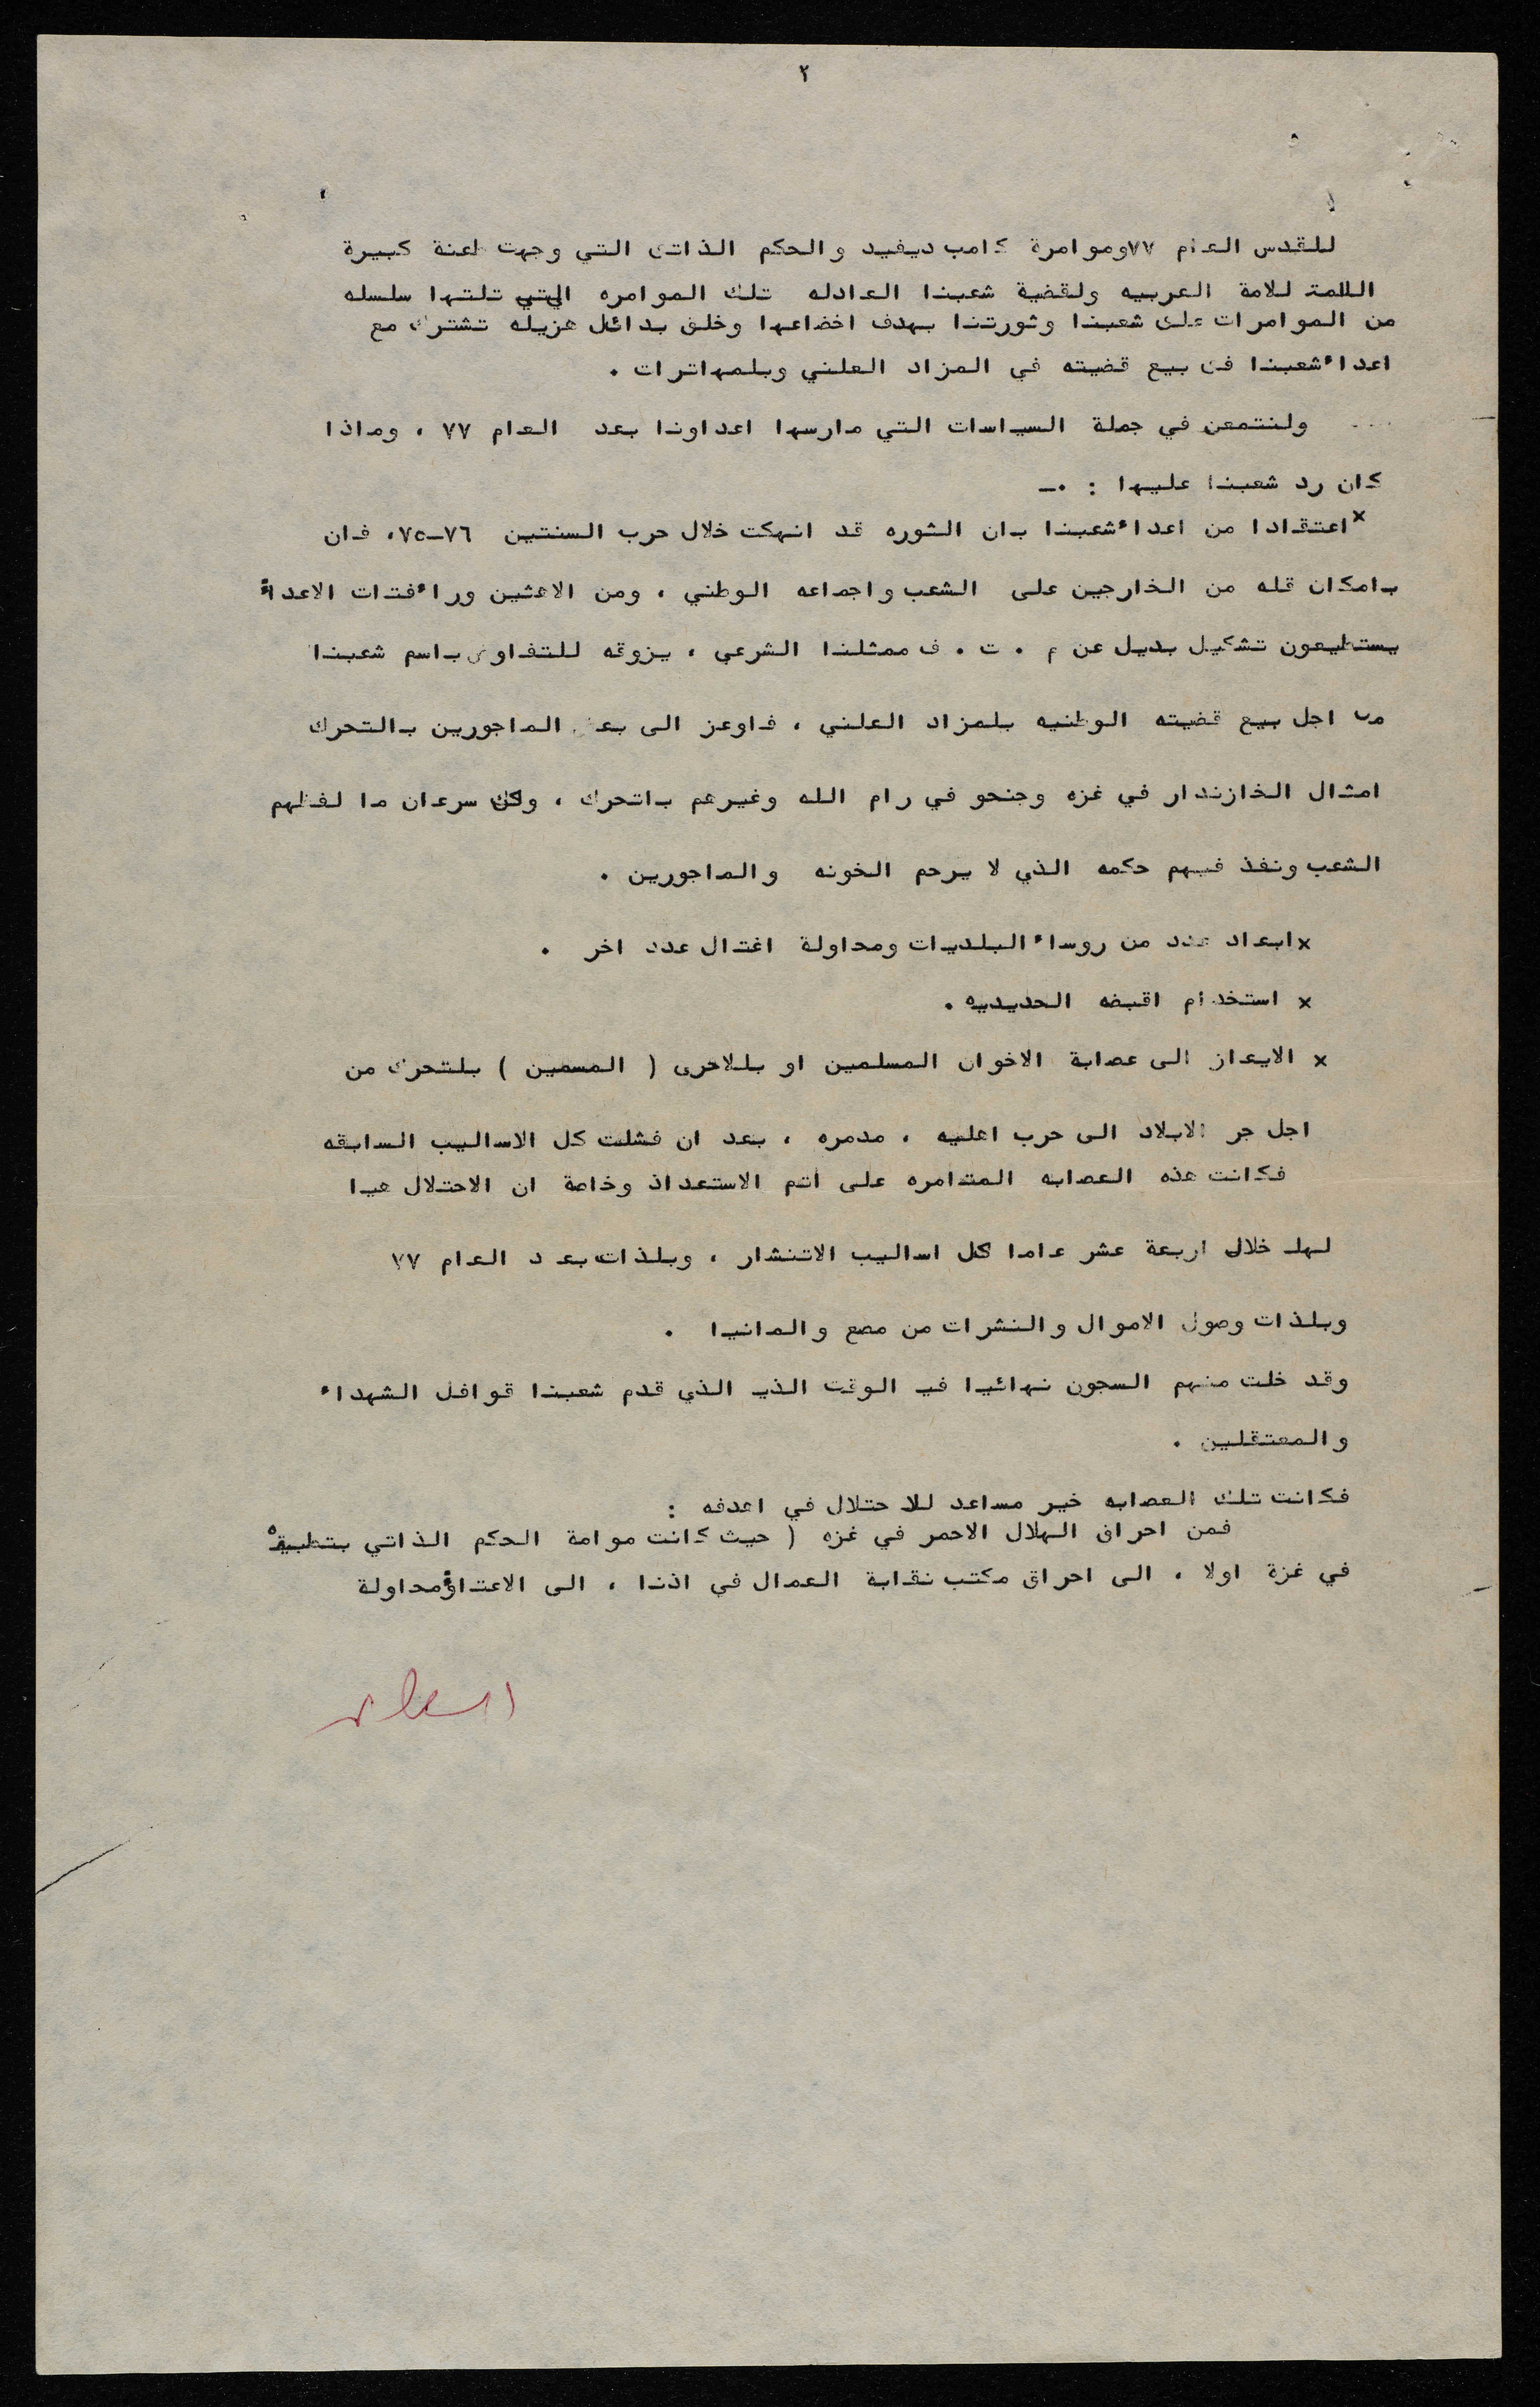 ٢
للقدس العام ٧٧ وموامرة كامب ديفيد والحكم الذاتى التي وجهت طعنة كبيرة
اللمة للامة العربيه ولقضية شعبنا العادله تلك الموامره التي تلتها سلسله
من الموامرات على شعبنا وثورتنا بهدف اخضاعها وخلق بدائل هزيله تشترك مع
اعداء شعبنا فى بيع قضيته في المزاد العلني وبلمهاترات .
ولنتمعن في جملة السياسات التي مارسها اعداونا بعد العام ٧٧ ، وماذا
كان رد شعبنا عليها : ٠ــ
× اعتقادا من اعداء شعبنا بان الثوره قد انهكت خلال حرب السنتين ٧٦ــ٧٥، فان
بامكان قله من الخارجين على الشعب واجماعه الوطني ، ومن الاهثين وراء فتات الاعداء
يستطيعون تشكيل بديل عن م . ت . ف ممثلنا الشرعي ، يزوقه للتفاوض باسم شعبنا
من اجل بيع قضيته الوطنيه بلمزاد العلني ، فاوعز الى بعض الماجورين بالتحرك
امثال الخازندار في غزه وجنحو في رام الله وغيرهم باتحرك ، ولكن سرعان ما لفظهم
الشعب ونفذ فيهم حكمه الذي لا يرحم الخونه والماجورين .
× ابعاد عدد من روساء البلديات ومحاولة اغتال عدد اخر .
× استخدام اقبضه الحديديه .
× الايعاز الى عصابة الاخوان المسلمين او بللاحرى ( المسمين ) بلتحرك من
اجل جر الابلاد الى حرب اهليه ، مدمره ، بعد ان فشلت كل الاساليب السابقه
فكانت هذه العصابه المتامره على اتم الاستعداذ وخاصة ان الاحتلال هيا
لها خلال اربعة عشر عاما كل اساليب الاتنشار ، وبلذات بعد العام ٧٧
وبلذات وصول الاموال والنشرات من مصع والمانيا .
وقد خلت منهم السجون نهائيا في الوقت الذي الذي قدم شعبنا قوافل الشهداء
والمعتقلين .
فكانت تلك العصابه خير مساعد للاحتلال في اهدفه :
فمن احراق الهلال الاحمر في غزه ( حيث كانت موامة الحكم الذاتي بتطبيقه
في غزة اولا ، الى احراق مكتب نقابة العمال في اذنا ، الى الاعتداء ومحاولة